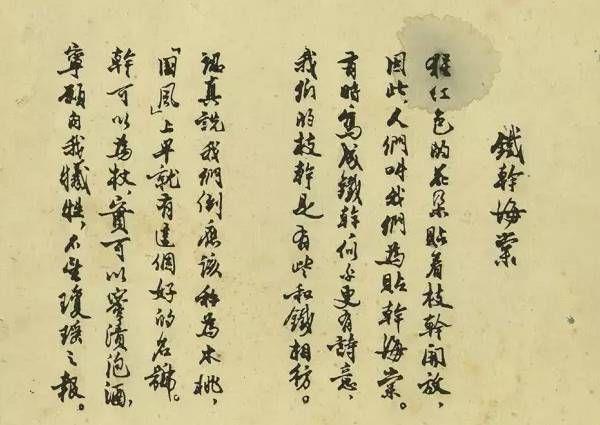 鐵幹海棠
猩紅色的花朵貼着枝幹開放，
因此，人們叫我們為貼幹海棠。
有時寫成鐵幹，何必更有詩意，
我們的枝幹是有些和鐵相彷。
認真說我們倒應該稱為木桃，
「国風」上早就有這個好的名號。
幹可以為杖，實可以蜜漬泡酒，
寧願自我犧牲，不望瓊瑤之報。